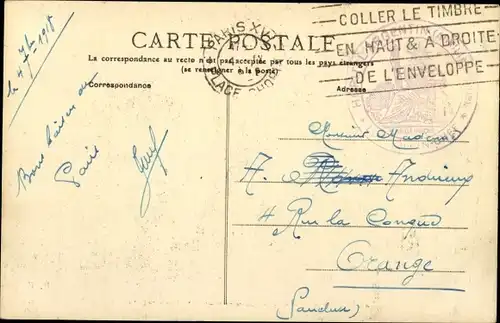 COLLER LE TIMBRE
EN HAUT & À DROITE
DE L'ENVELOPPE
PARIS XVII
PLACE
CARTE POSTALE
La correspondance au recto n'est pas acceptée par tous les pays étrangers
(se renseigner à la poste)
Correspondance
Adresse
le 4 7bre 1918
Bons baisers de
Paris
Monsieur Madame
A. Andrieux
4 Rue la Congue
Orange
(Vaucluse)